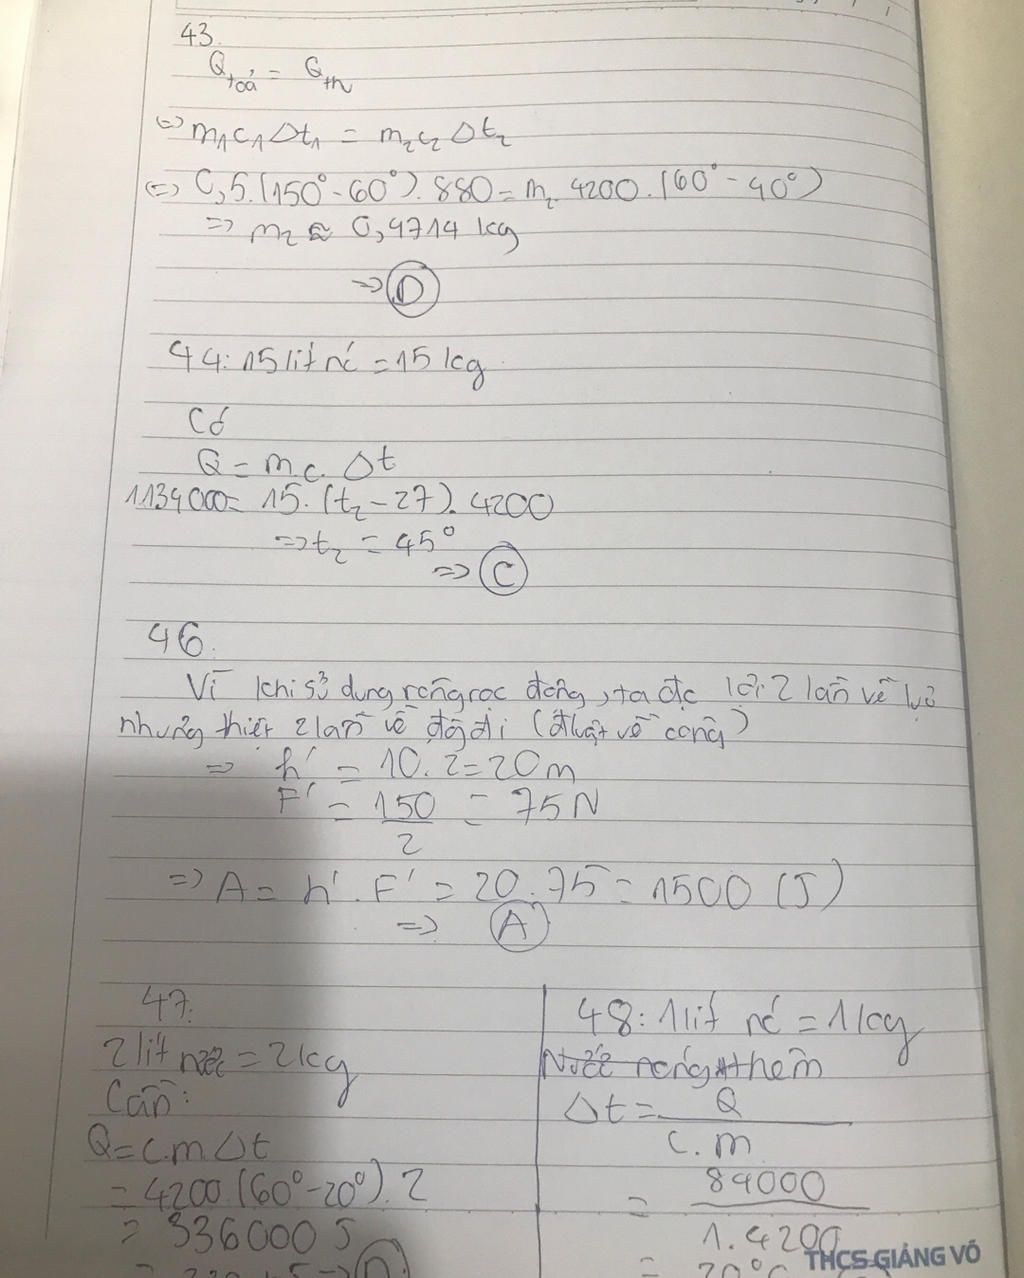 43.
Qtoả = Qth
<=> m₁c₁Δt₁ = m₂c₂Δt₂
<=> 0,5.(150°-60°).880 = m₂ 4200.(60°-40°)
=> m₂ ≈ 0,4714 kg
=> D
44: 15 lít nć = 15 kg
Có
Q = m.c. Δt
1134000 = 15.(t₂-27).4200
=> t₂ = 45°
=> C
46.
Vì khi sử dụng ròng rọc động, ta đc lợi 2 lần về lực
nhưng thiệt 2 lần về đg đi (đluật về công)
=> h' = 10.2 = 20m
F' = 150/2 = 75N
=> A = h'.F' = 20.75 = 1500 (J)
=> A
47:
2 lít nước = 2kg
Cần:
Q = c.m Δt
= 4200.(60°-20°).2
= 336000 J
48: 1 lít nć = 1kg
Nước nóng thêm
Δt = Q/c.m
= 84000/1.4200
= 20°C
THCS GIẢNG VÕ